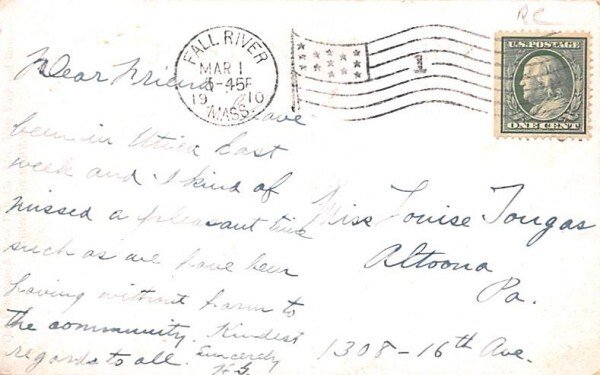 RC
FALL RIVER
MAR 1
5-45P
1910
MASS.
1
U.S. POSTAGE
ONE CENT
Dear Friend, Have
been in Utica last
week and I kind of
missed a pleasant time
such as we have been
having without harm to
the community. Kindest
regards to all. Sincerely
Miss Louise Tongas
Altoona
Pa.
1308-16th Ave.